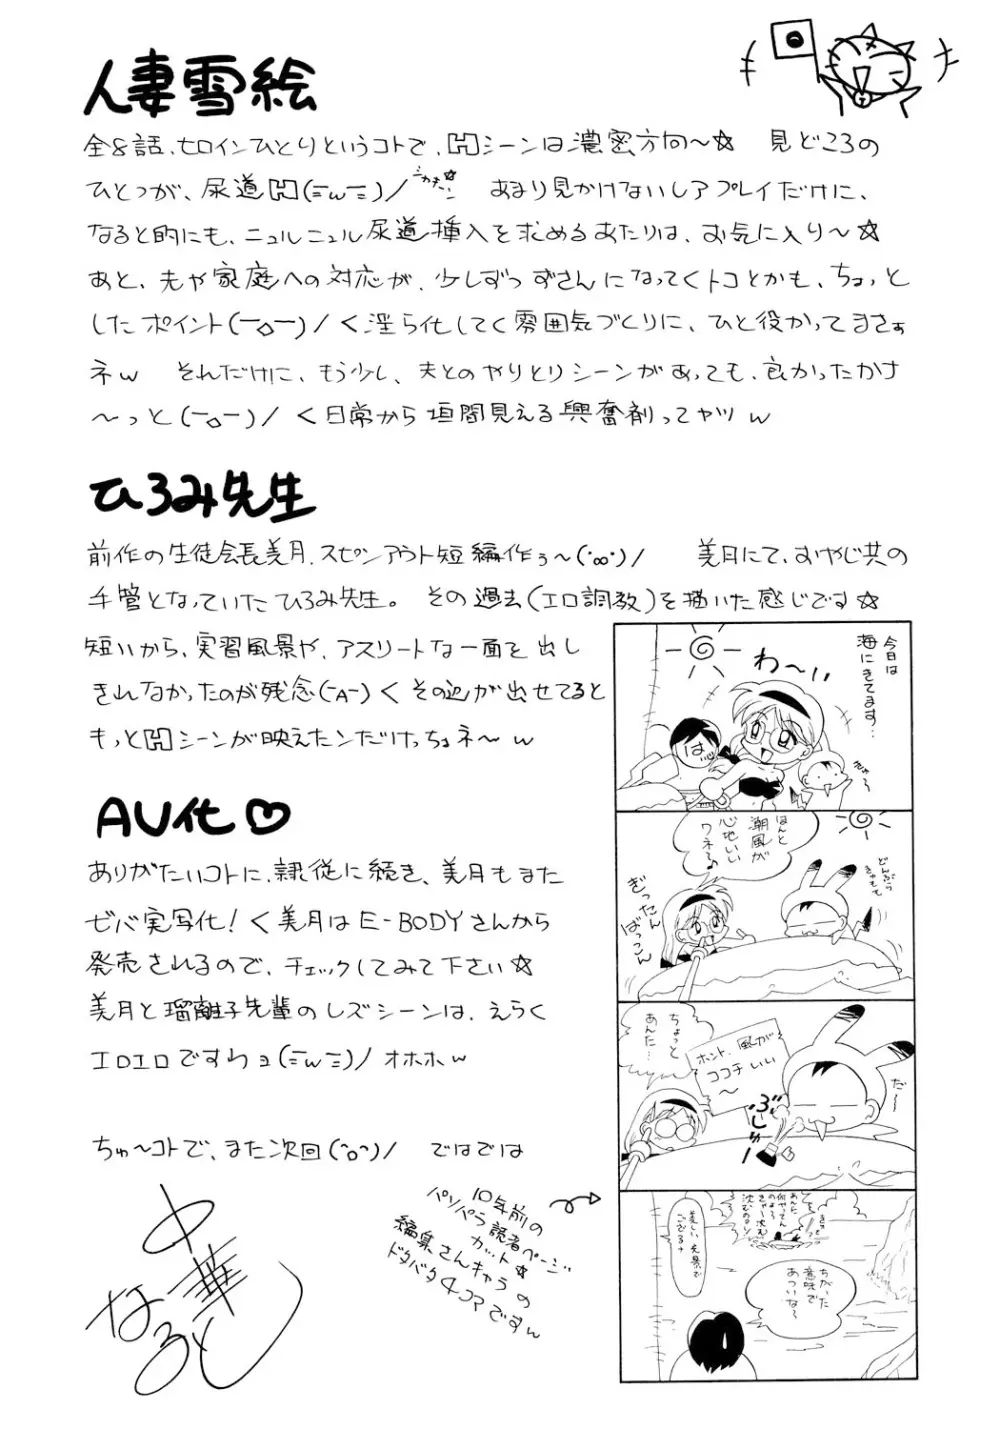 人妻雪絵
全8話、ヒロインひとりというコトで、Hシーンは濃密方向〜☆ 見どころの
ひとつが、尿道H(=w=)/ あまり見かけないレアプレイだけに、
なると的にも、ニュルニュル尿道挿入を求めるあたりは、お気に入り〜☆
あと、夫や家庭への対応が、少しずつずさんになってくトコとかも、ちょっと
したポイント(ー。ー)/ く淫ら化してく雰囲気づくりに、ひと役かってまさぁ
ネw それだけに、もう少し、夫とのやりとりシーンがあっても、良かったかナ
〜っと(ー。ー)/ く日常から垣間見える興奮剤ってヤツw
ひろみ先生
前作の生徒会長美月、スピンアウト短編作ぅ〜(・∞・)/ 美月にて、おやじ共の
手管となっていたひろみ先生。その過去(エロ調教)を描いた感じです☆
短いから、実習風景や、アスリートな一面を出し
きれなかったのが残念(ーAー) くその辺が出せてると
もっとHシーンが映えたンだけっちょネ〜w
AV化♡
ありがたいコトに、隷従に続き、美月もまた
ゼバ実写化！く美月はE-BODYさんから
発売されるので、チェックしてみて下さい☆
美月と瑠離子先輩のレズシーンは、えらく
エロエロですわョ(=w=)/オホホw
ちゅ〜コトで、また次回(^o^)/ ではでは
中華なると
10年前の
パソパラ読者ページ
カット☆
編集さんキャラの
ドタバタ4コマですw
今日は
海にきてます…
わ〜い
ほんと
潮風が
心地いい
ワネる
どんぶら
ぎったん
ばっこん
ちょっと
あんた…
ホント、風が
ココチいい
〜
だ〜
ぷしゅー
美しい光景で
ございますナ
ちがった
意味で
あついな〜